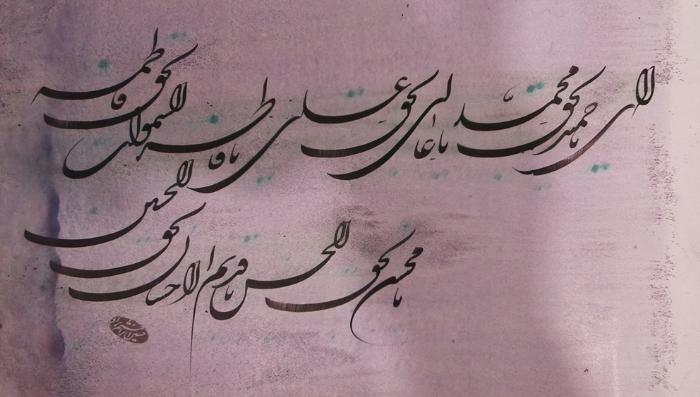 الهی یا حمید بحق محمد یا عالی بحق علی یا فاطر السموات بحق فاطمه
یا محسن بحق الحسن یا قدیم الاحسان بحق الحسین